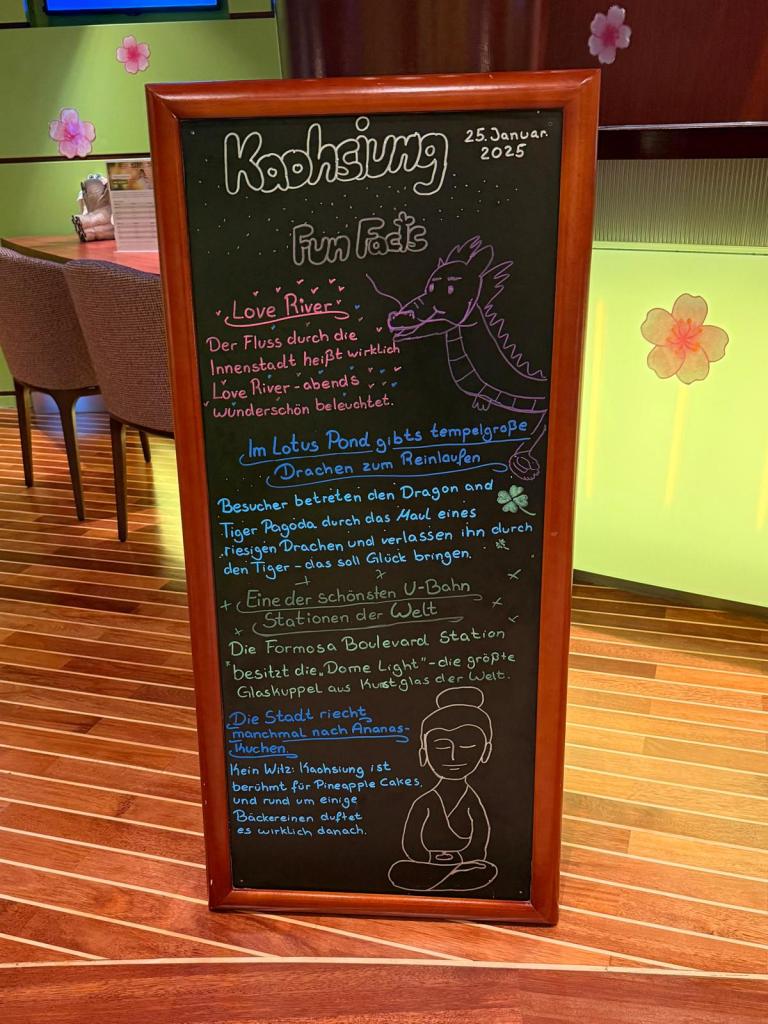 Kaohsiung
25. Januar
2025
Fun Facts
Love River
Der Fluss durch die
Innenstadt heißt wirklich
Love River - abends
wunderschön beleuchtet.
Im Lotus Pond gibts tempelgroße
Drachen zum Reinlaufen
Besucher betreten den Dragon and
Tiger Pagoda durch das Maul eines
riesigen Drachen und verlassen ihn durch
den Tiger - das soll Glück bringen.
Eine der schönsten U-Bahn
Stationen der Welt
Die Formosa Boulevard Station
besitzt die „Dome Light" - die größte
Glaskuppel aus Kunstglas der Welt.
Die Stadt riecht
manchmal nach Ananas-
kuchen.
Kein Witz: Kaohsiung ist
berühmt für Pineapple Cakes,
und rund um einige
Bäckereinen duftet
es wirklich danach.